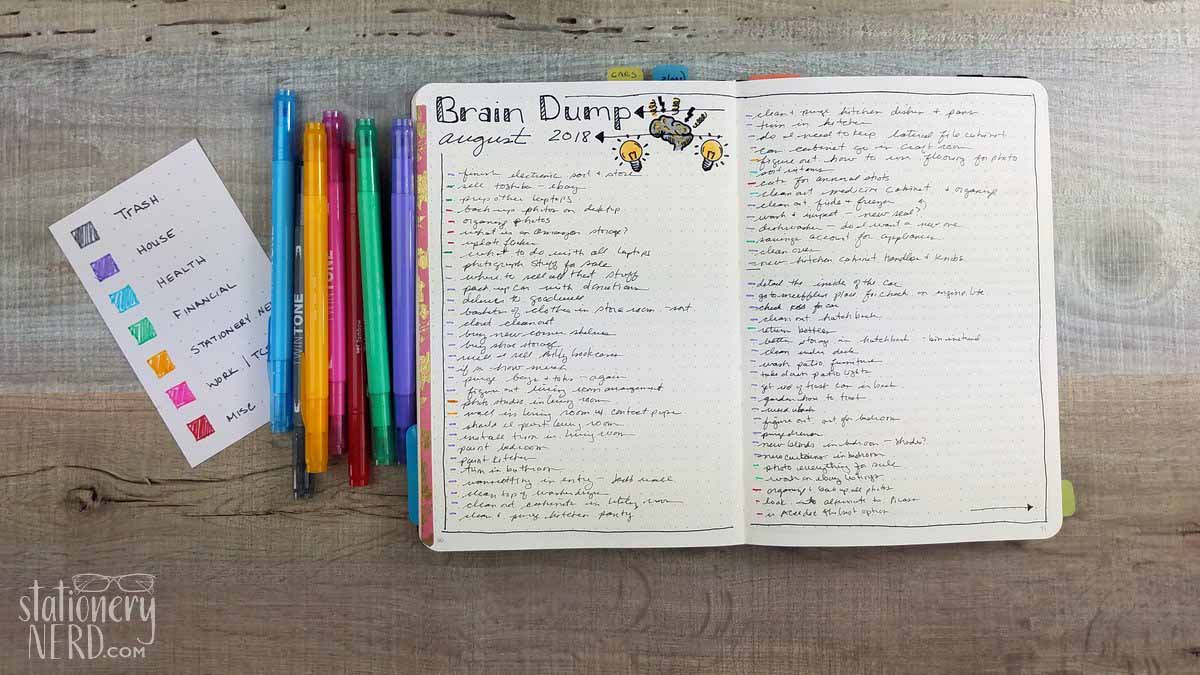 CABS
Brain Dump
august 2018
- finish electronic sort & store
- sell toshiba - ebay
- prep other laptops
- back up photos on desktop
- organize photos
- what is on amazon storage?
- update flicker
- what to do with all laptops
- photograph stuff for sale
- where to sell all that stuff
- pack up car with donations
- deliver to goodwill
- baskets of clothes in store room - sort
- closet clean out
- buy new corner shelves
- buy shoe storage
- will I sell bookcases
- if so how much
- purge bags & totes - again
- figure out living room arrangement
- photo studio in living room
- wall in living room w. contact paper
- should I paint living room
- install trim in living room
- paint bedroom
- paint kitchen
- trim in bathroom
- wainscotting in entry - wall
- clean top of washer dryer
- clean out cabinets in utility room
- clean & purge kitchen pantry
- clean & purge kitchen dishes & pans
- trim in kitchen
- do I need to keep lateral file cabinet
- can cabinet go in craft room
- figure out how to use flooring for photo
- cats for annual shots
- clean out medicine cabinet & organize
- clean out fridge & freezer
- wash & inspect - new seal?
- dishwasher - do I want a new one
- savings account for appliances
- clean oven
- new kitchen cabinet handles & knobs
- detail the inside of the car
- go to place for check on engine lite
- check for car
- clean out hatchback
- return bottles
- better storage in hatchback - bin instead
- clean under deck
- wash patio furniture
- take down patio lights
- get rid of trash can in back
- garden hose to trash
- figure out art for bedroom
- purge dresser
- new blinds in bedroom - shades?
- new curtains in bedroom
- photo everything for sale
- work on ebay listings
- organize & back up all photos
- look alternate to Picasa
- is ACDSee the best option
TRASH
HOUSE
HEALTH
FINANCIAL
STATIONERY.NE
WORK | TCS
MISC
TWINTONE
TWINTONE
stationery
NERD.COM